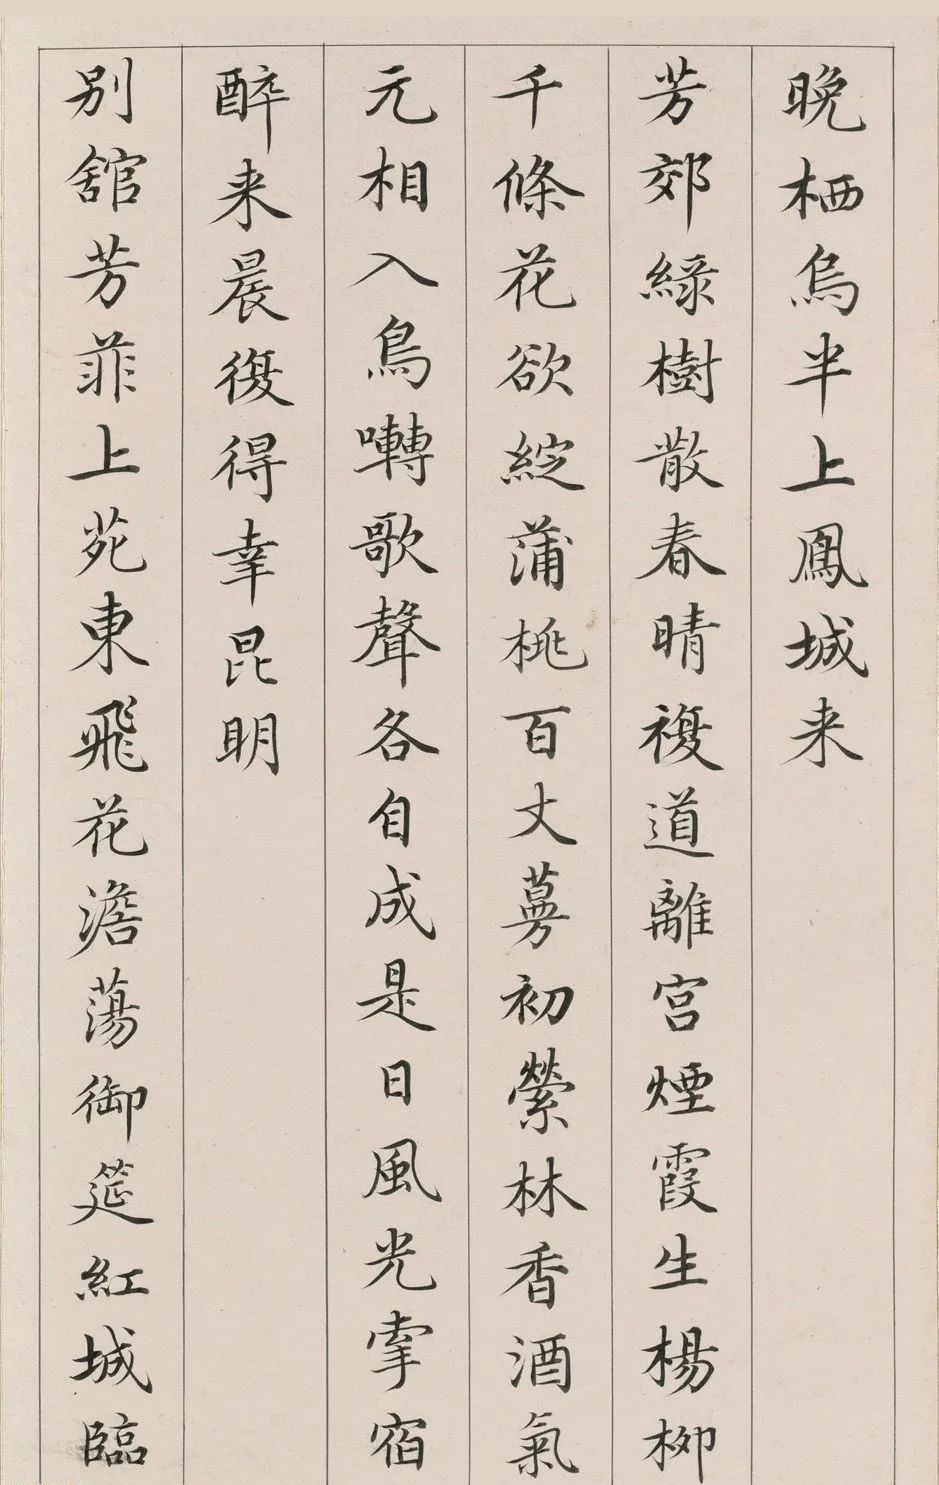 晚栖烏半上鳳城来
芳郊綠樹散春晴複道離宮煙霞生楊柳
千條花欲綻蒲桃百丈蔓初縈林香酒氣
元相入鳥囀歌聲各自成是日風光寧宿
醉来晨復得幸昆明
別舘芳菲上苑東飛花澹蕩御筵紅城臨